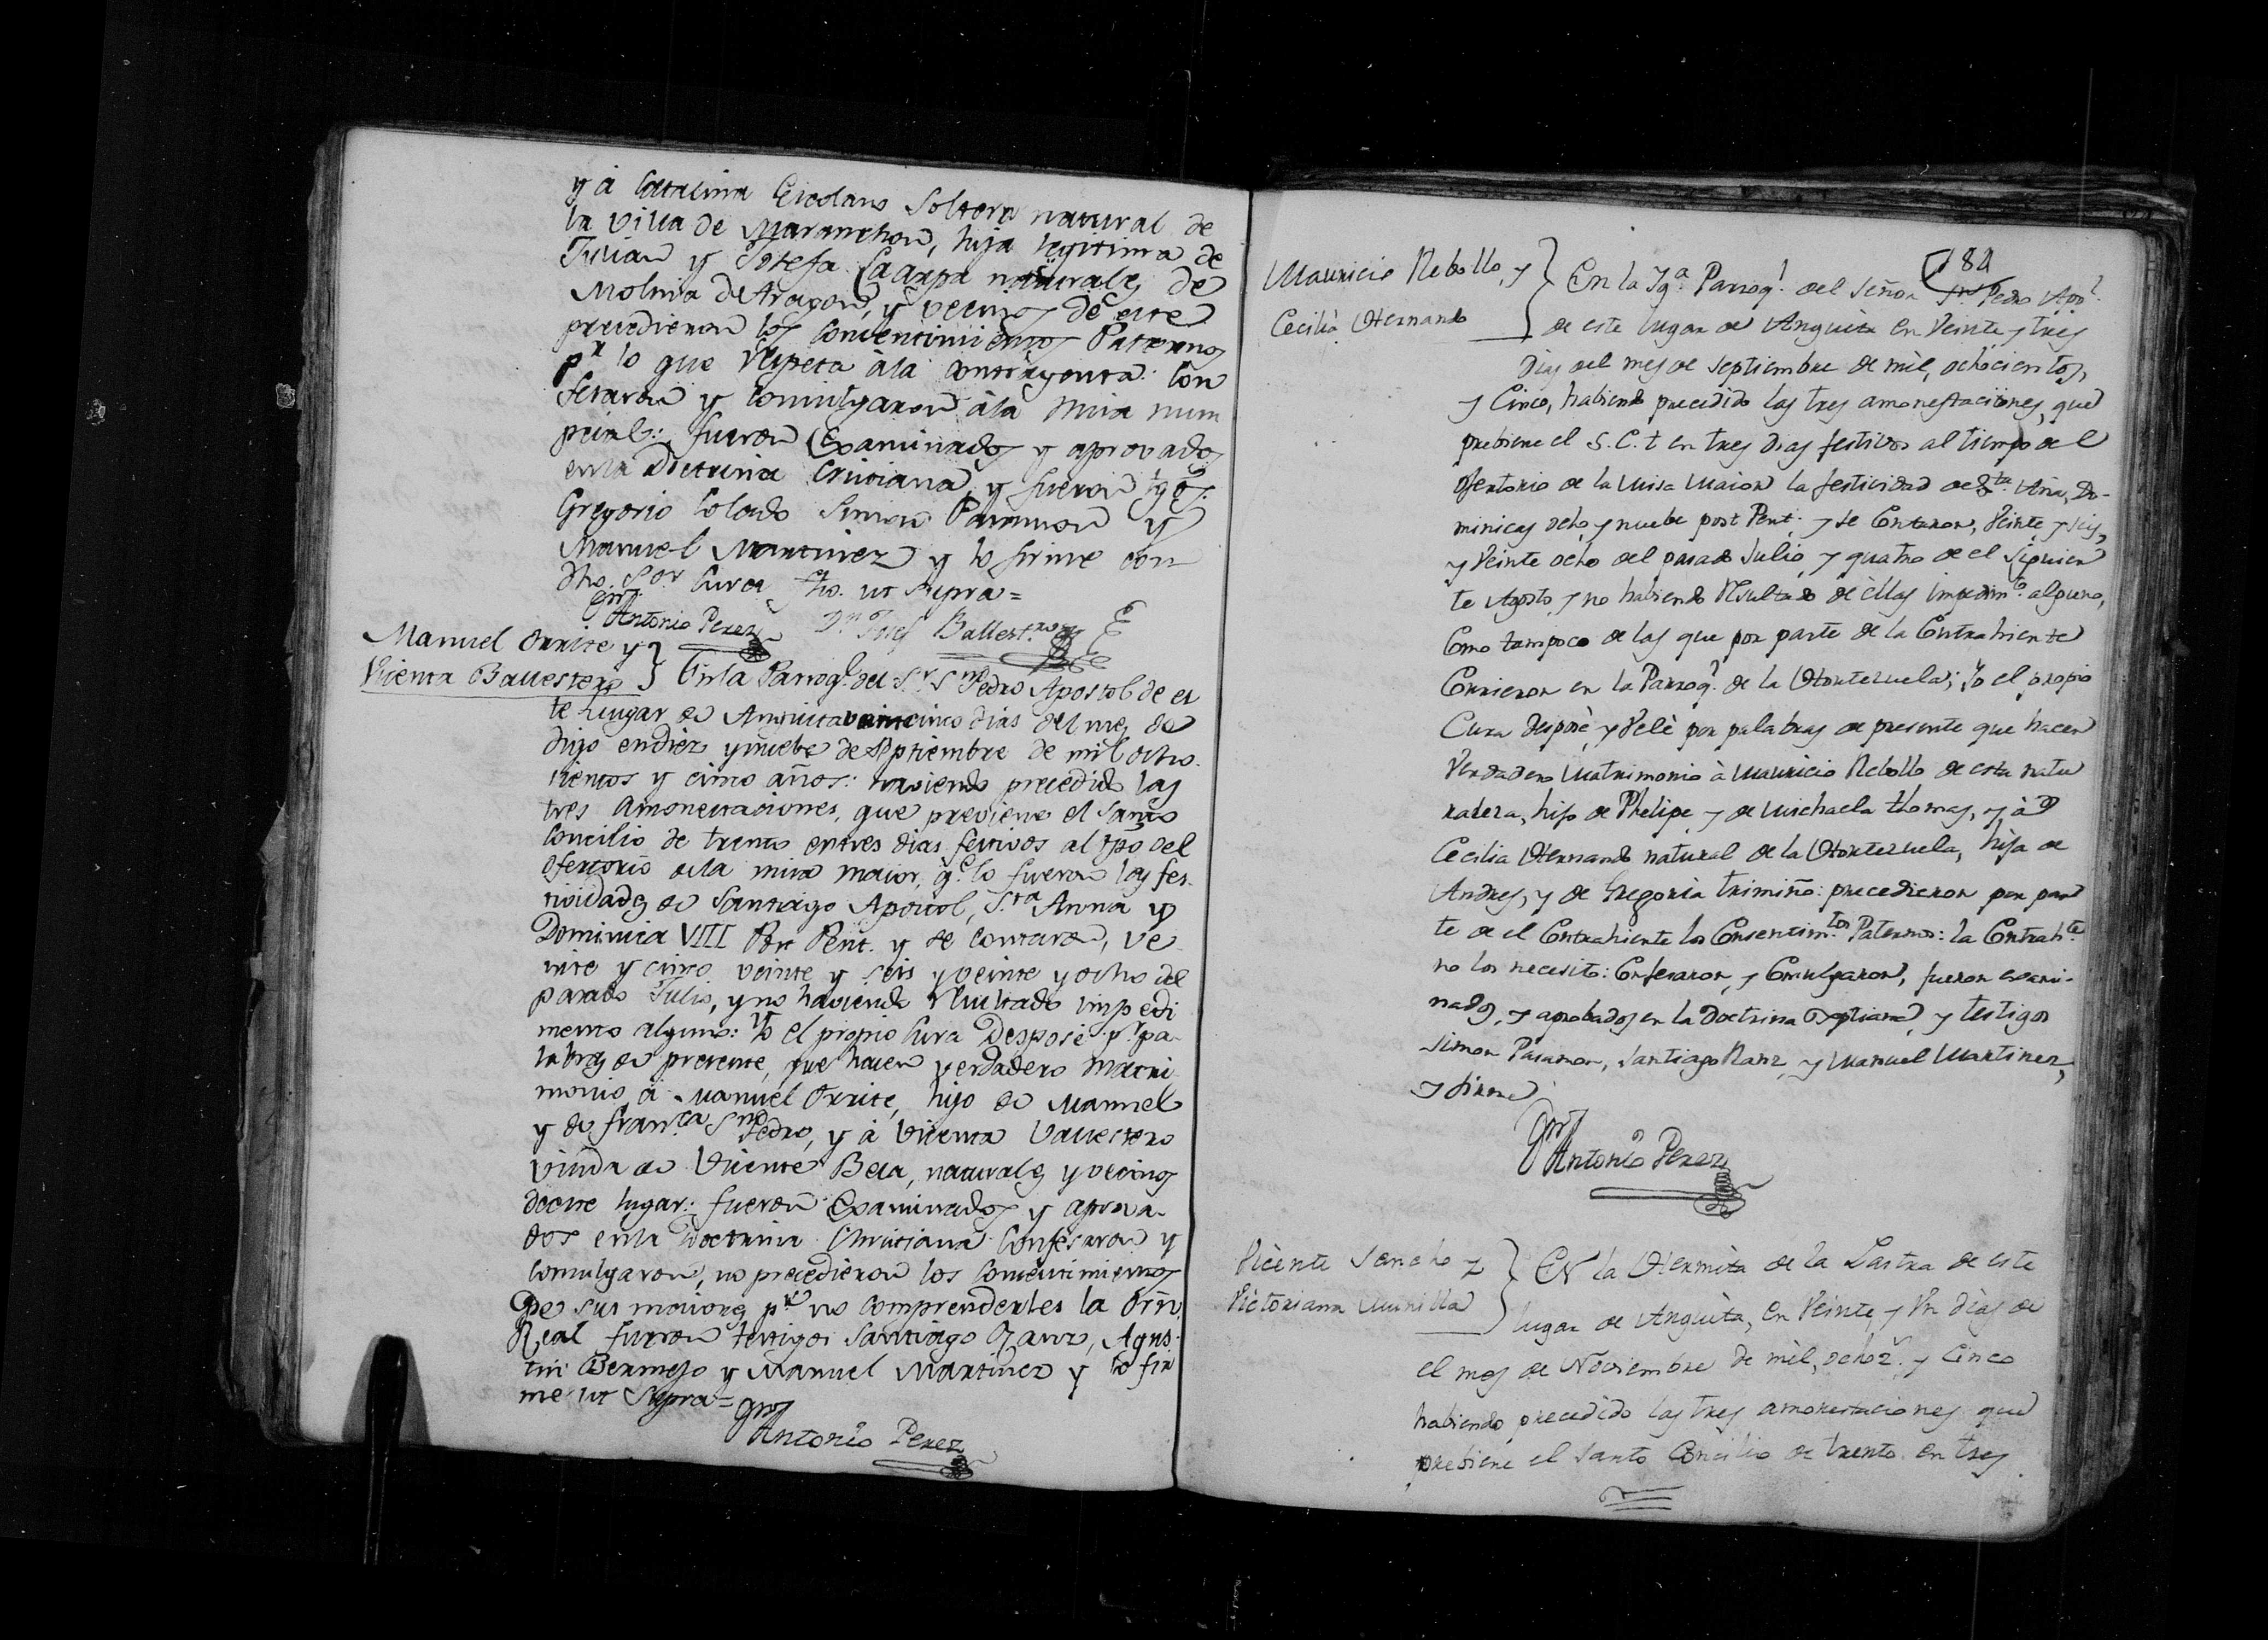 y á Catalina Escolano Soltera natural de
la villa de Maranchon, hija legitima de
Julian y Josefa Laarpa naturales de
Molina de Aragon, y vecinos de este
precedieron los Consentimientos Paternos
pr lo que respeta á la contrayenta: Con
fesaron y comulgaron á la misa num
pcial: fueron Examinados y aprovados
en la Doctrina Cristiana, y fueron tgos.
Gregorio Colado Simon Pasamon y
Manuel Martinez y lo firme con
dho. Sor Cura fho. ut supra =
Antonio Perez Dn Josef Ballestros
Manuel Orrite y
Vicenta Ballestero } En la Parroql. del Sr. Sn Pedro Apostol de es
te Lugar de Anguita veinticinco dias del mes de
digo en diez y nuebe de Septiembre de mil ocho.
cientos y cinco años: haviendo precedido las
tres Amonestaciones, que previene el Santo
Concilio de trento en tres dias festivos al tpo del
ofertorio de la misa maior, qe. lo fueron las fes-
tividades de Santiago Apostol, Sta Anna y
Dominica VIII Post Pent. y se contaron, ve
inte y cinco veinte y seis y veinte y ocho del
pasado Julio, y no haviendo resultado impedi
mento alguno: Yo el propio Cura Desposé pr. pa-
labras de presente, que hacen verdadero matri
monio, á Manuel Orrite, hijo de Manuel
y de Franca Sn Pedro, y á Vicenta Vallestero
viuda de Vicente Bela, naturales y vecinos
de este lugar: fueron Examinados y aprova-
dos en la Doctrina Christiana Confesaron y
comulgaron, no precedieron los Consentimientos
De sus maiores pr. no comprenderles la Orn.
Real fueron testigos Santiago Ranz, Agus-
tin Bermejo y Manuel Martinez y lo fir
me ut Supra =
Antonio Perez
184
Mauricio Rebollo, y
Cecilia Hernando
En la Yga. Parroql. del Señor Sn Pedro Apol.
de este lugar de Anguita en Veinte y tres
dias del mes de Septiembre de mil, ochocientos,
y Cinco, habiendo precedido las tres amonestaciones, que
prebiene el S. C. t en tres dias festivos al tiempo del
ofertorio de la Misa Maior la festividad de Sta. Ana, Do-
minicas ocho, y nuebe post Pent. y se Contaron, Veinte y seis,
y Veinte ocho del pasado Julio, y quatro de el siguien
te Agosto, y no habiendo Resultado de ellas impedimto. alguno,
Como tampoco de las que por parte de la Contrahiente
Corrieron en la Parroql. de la Hortezuela; Yo el propio
Cura desposé, y Velé por palabras de presente que hacen
Verdadero Matrimonio à Mauricio Rebollo de esta natu
raleza, hijo de Phelipe, y de Michaela thomas, y à
Cecilia Hernando natural de la Hortezuela, hija de
Andres, y de Gregoria trimiño: precedieron por par
te de el Contrahiente los Consentimtos. Paternos: la Contrahte.
no los necesito: Confesaron, y Comulgaron, fueron exami-
nados, y aprobados en la Doctrina Xptiana, y testigos
Simon Pasamon, Santiago Ranz, y Manuel Martinez,
y firme
Antonio Perez
Vicente Sancho y
Victoriana Munilla
En la Hermita de la Lastra de este
lugar de Anguita, en Veinte y Un dias de
el mes de Noviembre de mil, ochoz. y Cinco
habiendo precedido las tres amonestaciones que
prebiene el Santo Concilio de trento en tres